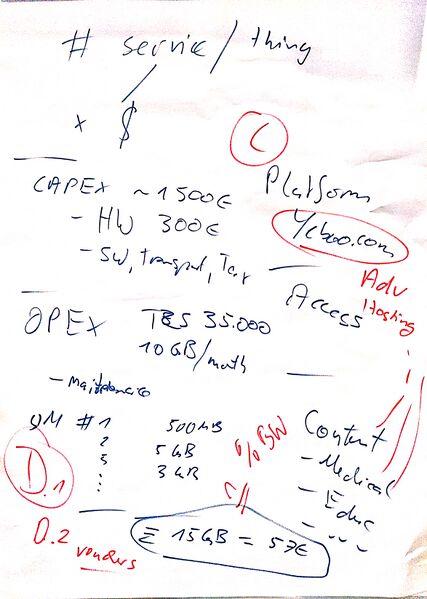 # service / thing
x $
C
CAPEX ~ 1500€
- HW 300€
- SW, transport, Tax
Platform
Yeboo.com
Access
Adv
Hosting
OPEX TBS 35.000
10 GB/month
- Maintenance
#1 500MB
2 5 GB
3 3 GB
⋮
D.1
D.2
vendors
% BW
Content
- Medical
- Educ
- " "
Σ 15GB = 57€